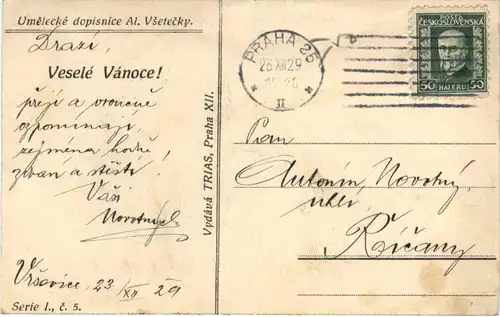 Umělecké dopisnice Al. Všetečky.
Drazí,
Veselé Vánoce!
přejí a vroucně
vzpomínají
zejména hodně
zdraví a štěstí.
Vaši
Novotných
Vršovice 23/XII 29
Serie I., č. 5.
Vydává TRIAS, Praha XII.
PRAHA 25
23 XII 29
II
POŠTA
ČESKOSLOVENSKÁ
50 HALÉŘŮ 50
Pan
Antonín Novotný,
Říčany